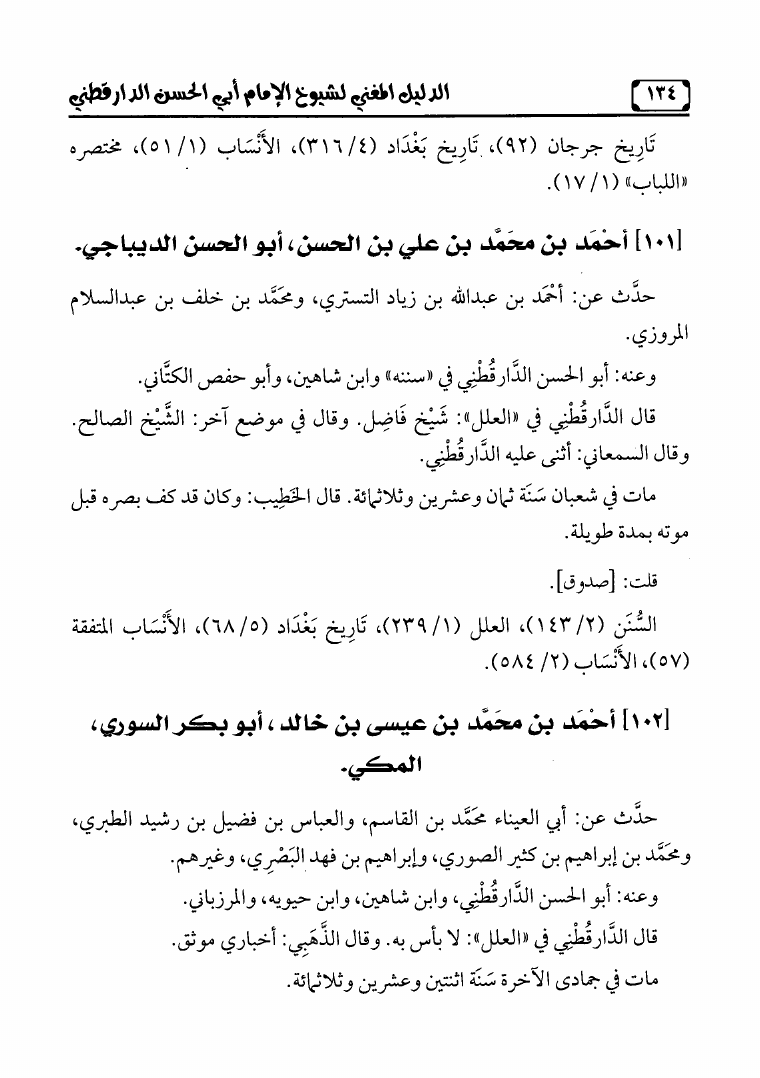 ١٣٤ الدليل المغني لشيوخ الإمام أبي الحسن الدارقطني
تَارِيخ جرجان (٩٢)، تَارِيخ بَغْدَاد (٤/ ٣١٦)، الأَنْسَاب (١/ ٥١)، مختصره
«اللباب» (١/ ١٧).
[١٠١] أحْمَد بن محَمَّد بن علي بن الحسن، أبو الحسن الديباجي.
حدَّث عن: أحْمَد بن عبدالله بن زياد التستري، ومحَمَّد بن خلف بن عبدالسلام
المروزي.
وعنه: أبو الحسن الدَّارقُطْنِي في «سننه» وابن شاهين، وأبو حفص الكتَّاني.
قال الدَّارقُطْنِي في «العلل»: شَيْخ فَاضِل. وقال في موضع آخر: الشَّيْخ الصالح.
وقال السمعاني: أثنى عليه الدَّارقُطْنِي.
مات في شعبان سَنَة ثمان وعشرين وثلاثمائة. قال الخَطِيب: وكان قد كف بصره قبل
موته بمدة طويلة.
قلت: [صدوق].
السُّنَن (٢/ ١٤٣)، العلل (١/ ٢٣٩)، تَارِيخ بَغْدَاد (٥/ ٦٨)، الأَنْسَاب المتفقة
(٥٧)، الأَنْسَاب (٢/ ٥٨٤).
[١٠٢] أحْمَد بن محَمَّد بن عيسى بن خالد، أبو بكر السوري،
المكي.
حدَّث عن: أبي العيناء محَمَّد بن القاسم، والعباس بن فضيل بن رشيد الطبري،
ومحَمَّد بن إبراهيم بن كثير الصوري، وإبراهيم بن فهد البَصْرِي، وغيرهم.
وعنه: أبو الحسن الدَّارقُطْنِي، وابن شاهين، وابن حيويه، والمرزباني.
قال الدَّارقُطْنِي في «العلل»: لا بأس به. وقال الذَّهَبِي: أخباري موثق.
مات في جمادى الآخرة سَنَة اثنتين وعشرين وثلاثمائة.